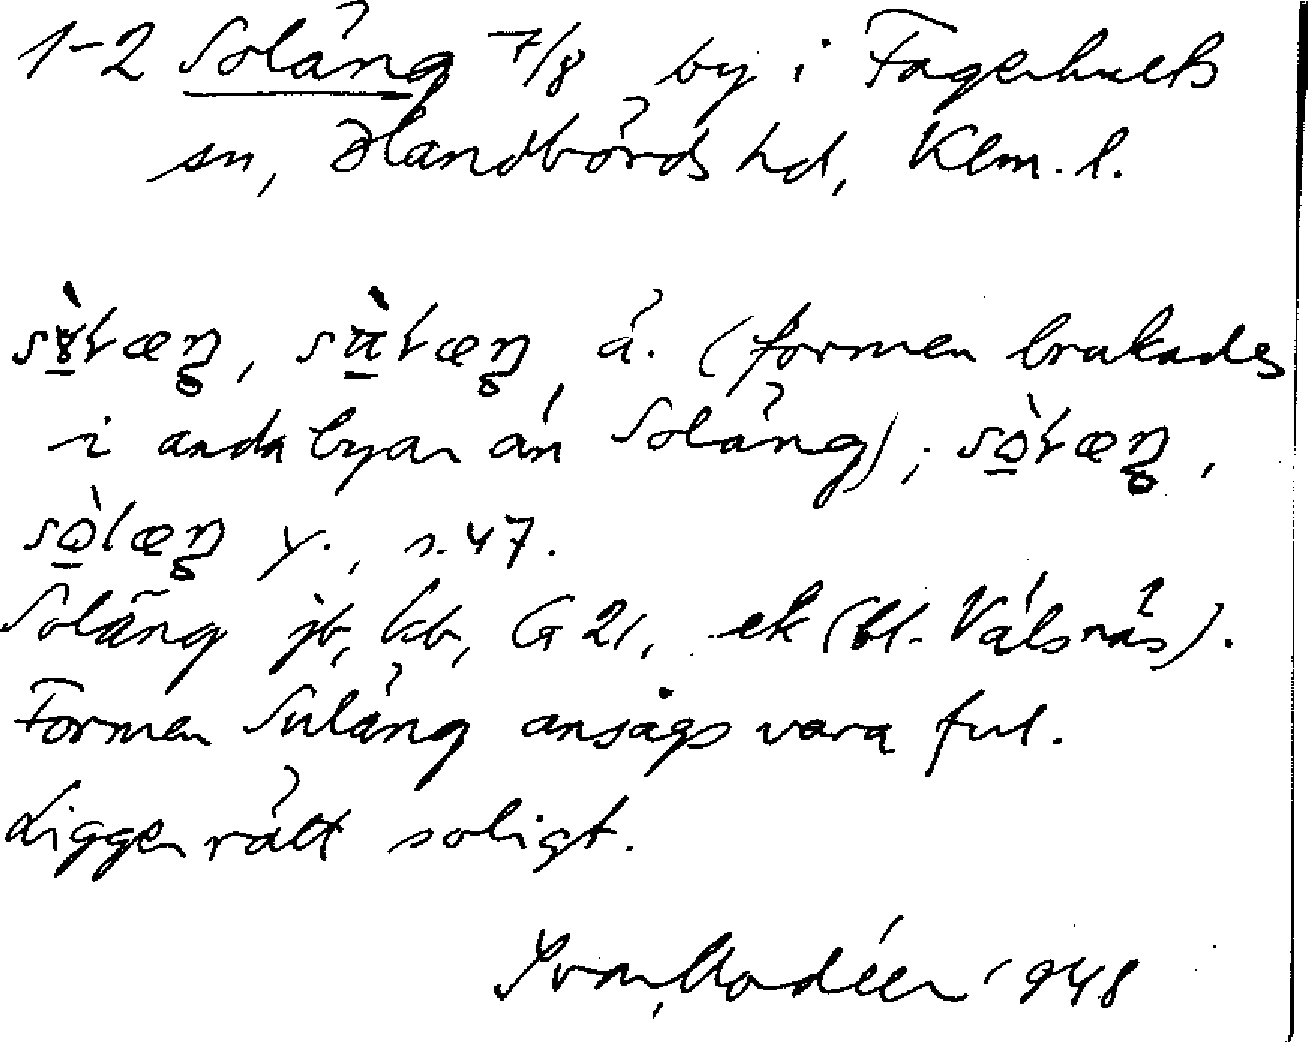 1-2 Soläng 7/8 by i Fagerhults
sn, Handbörds hd, Klm. l.
ä. (formen brukades
i andra byar än Soläng);
y., s. 47.
Soläng jb, kb, G 21, ek (bl. Välsnäs).
Formen Suläng ansågs vara ful.
Ligger rätt soligt.
Ivar Modéer 1948